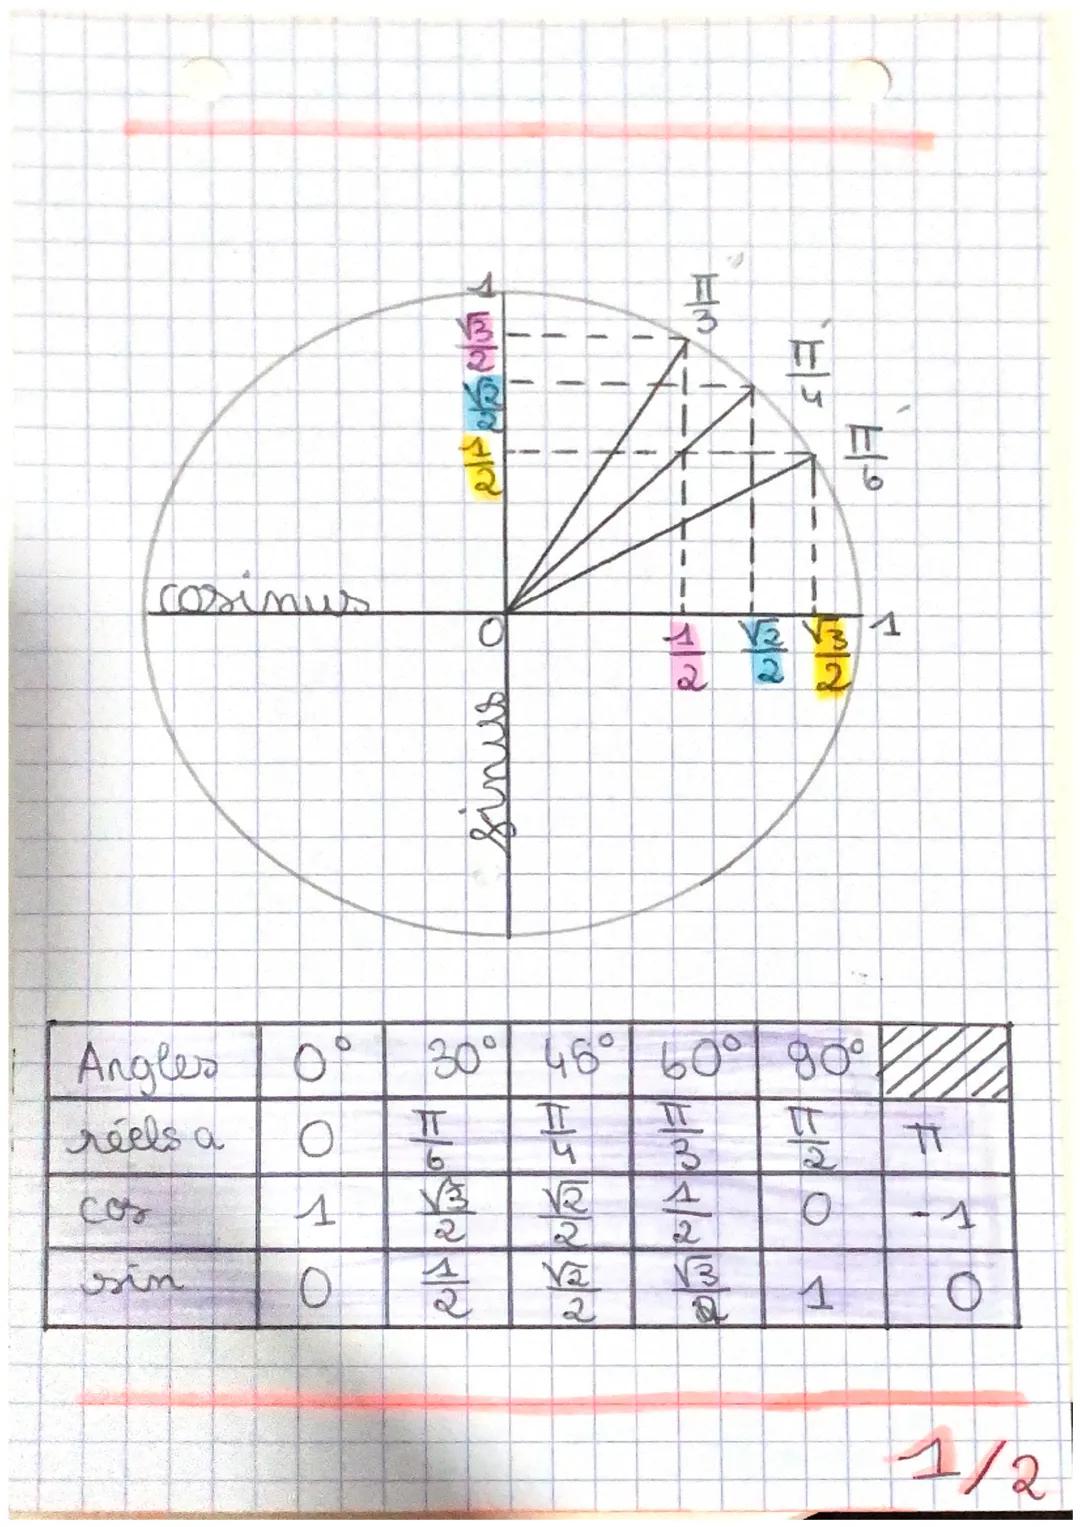 1
π/3
√3/2
π/4
√2/2
π/6
1/2
cosinus
0
1/2
√2/2
√3/2
1
sinus
Angles 0° 30° 45° 60° 90°
réels a 0 π/6 π/4 π/3 π/2 π
cos 1 √3/2 √2/2 1/2 0 -1
sin 0 1/2 √2/2 √3/2 1 0
1/2